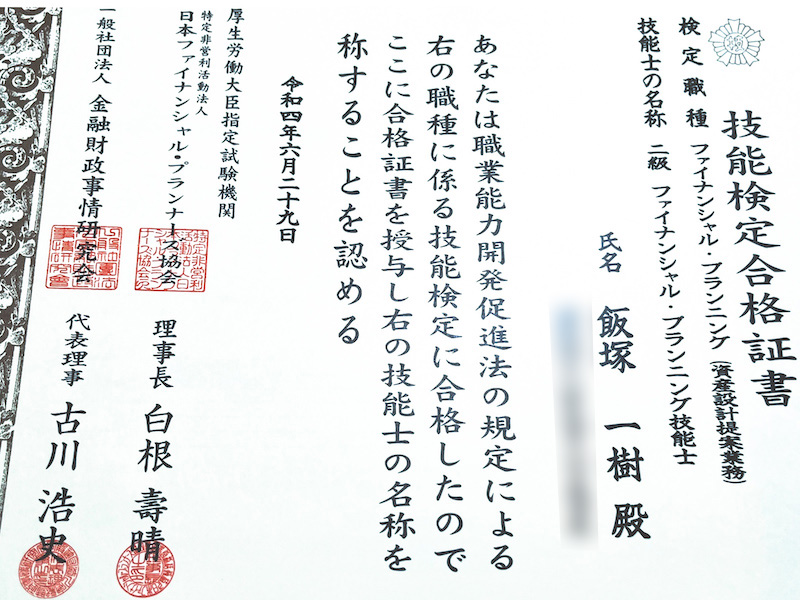 技能検定合格証書
検定職種 ファイナンシャル・プランニング(資産設計提案業務)
技能士の名称 二級 ファイナンシャル・プランニング技能士
氏名 飯塚 一樹 殿
あなたは職業能力開発促進法の規定による
右の職種に係る技能検定に合格したので
ここに合格証書を授与し右の技能士の名称を
称することを認める
令和四年六月二十九日
厚生労働大臣指定試験機関
特定非営利活動法人
日本ファイナンシャル・プランナーズ協会
理事長 白根 壽晴
一般社団法人 金融財政事情研究会
代表理事 古川 浩史